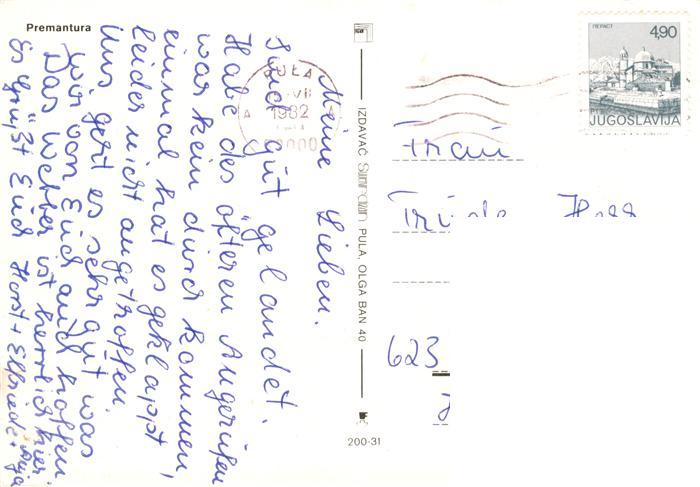 Premantura
Meine Lieben.
Sind gut gelandet.
Habe des öfteren Angerufen
war kein durch kommen,
einmal hat es geklappt
leider nicht angetroffen.
Uns gert es sehr gut was
wir von Euch auch hoffen.
Das Wetter ist herrlich hier.
Es grüßt Euch Horst + Elfriede + Anja
PULA
VII
1982
IZDAVAČ PULA, OLGA BAN 40
200-31
ПЕРАСТ
4,90
JUGOSLAVIJA
Frau
623